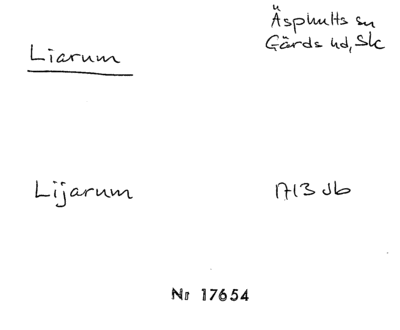 Liarum
Äsphults sn
Gärds hd, Sk
Lijarum
1713 Jb
Nr 17654